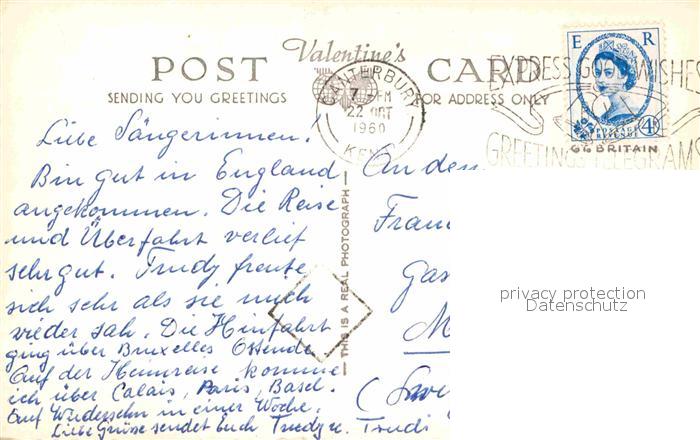 Valentine's
POST CARD
SENDING YOU GREETINGS
FOR ADDRESS ONLY
CANTERBURY
7 PM
22 OCT
1960
KENT
EXPRESS GOOD WISHES
GREETINGS TELEGRAMS
E R
POSTAGE
REVENUE
4D
GG BRITAIN
Liebe Sängerinnen!
Bin gut in England
angekommen. Die Reise
und Überfahrt verlief
sehr gut. Trudy freute
sich sehr als sie mich
wieder sah. Die Hinfahrt
ging über Bruxelles Ostende
Auf der Heimreise komme
ich über Calais, Paris, Basel.
Auf Wiedersehn in einer Woche.
Liebe Grüsse sendet Euch Trudy u. Trudi
THIS IS A REAL PHOTOGRAPH
An den
Frau
Gas
M
(
privacy protection
Datenschutz